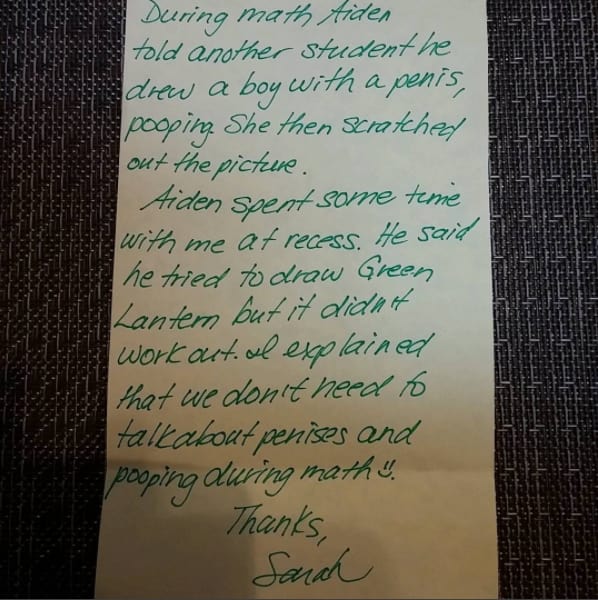 During math Aiden
told another student he
drew a boy with a penis,
pooping. She then scratched
out the picture.
Aiden spent some time
with me at recess. He said
he tried to draw Green
Lantern but it didn't
work out. I explained
that we don't need to
talk about penises and
pooping during math :).
Thanks,
Sarah